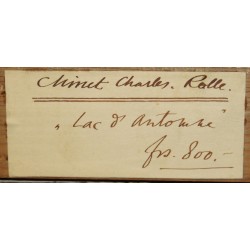 Chinet Charles. Rolle.
„Lac d'Automne"
frs. 800.-